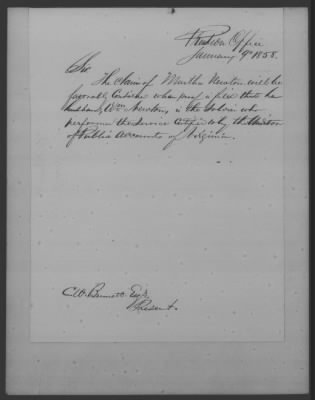 Pension Office
January 9th 1858.
Sir
The claim of Martha Newton will be
favorably considered when proof is filed that her
husband, Wm Newton, is the soldier who
performed the service certified to by the Auditor
of Public Accounts of Virginia.
C.W. Bennett Esq.
Present.